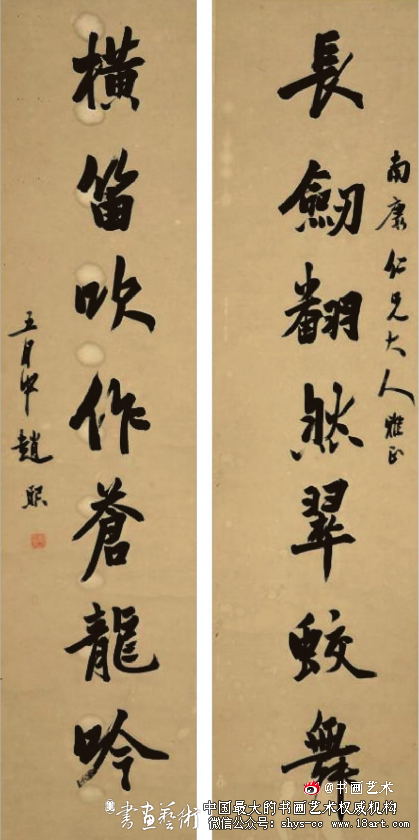 南康仁兄大人雅正
長劒翻然翠蛟舞
橫笛吹作蒼龍吟
五月中趙熙
@书画艺术
書画藝術
中国最大的书画艺术权威机构
微信公众号：shys-cc www.18art.com